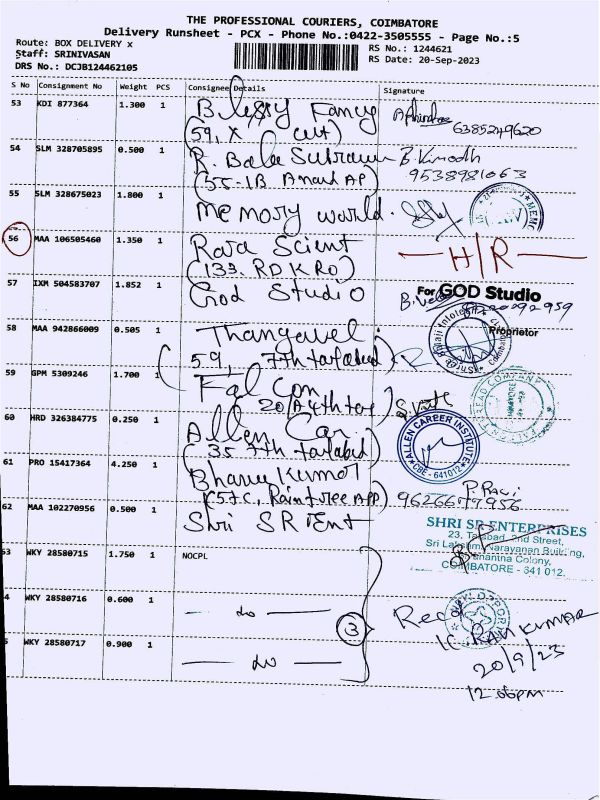 THE PROFESSIONAL COURIERS, COIMBATORE
Delivery Runsheet - PCX - Phone No.:0422-3505555 - Page No.:5
Route: BOX DELIVERY x
RS No.: 1244621
Staff: SRINIVASAN
RS Date: 20-Sep-2023
DRS No.: DCJB124462105
S No Consignment No Weight PCS Consignee Details Signature
53 KDI 877364 1.300 1
(59, x cut)
6385249620
54 SLM 328705895 0.500 1
R. Bala B. Vinodh
(55-1B Anand AP) 9538981063
55 SLM 328675023 1.800 1
Memory world.
56 MAA 106505460 1.350 1
Raja Scient H/R
(133, RD K RO)
57 IXM 504583707 1.852 1
God Studio
For GOD Studio
Proprietor
58 MAA 942866009 0.505 1
Thangavel
(59, 7th tatabad)
59 GPM 5309246 1.700 1
Falcon
60 HRD 326384775 0.250 1
Allen Car
(35 7th tatabad)
ALLEN CAREER INSTITUTE
CBE - 641012
61 PRO 15417364 4.250 1
Bharu Kumar
(5FC, Raintree APP) P. Ravi
62 MAA 102270956 0.500 1
Shri SR Ent
SHRI SR ENTERPRISES
23, Tatabad, 2nd Street,
Sri Lakshmi Narayanan Building,
Colony,
COIMBATORE - 641 012.
63 WKY 28580715 1.750 1 NOCPL
4 WKY 28580716 0.600 1
do
3
Recd
K RAM KUMAR
20/9/23
12.06pm
WKY 28580717 0.900 1
do